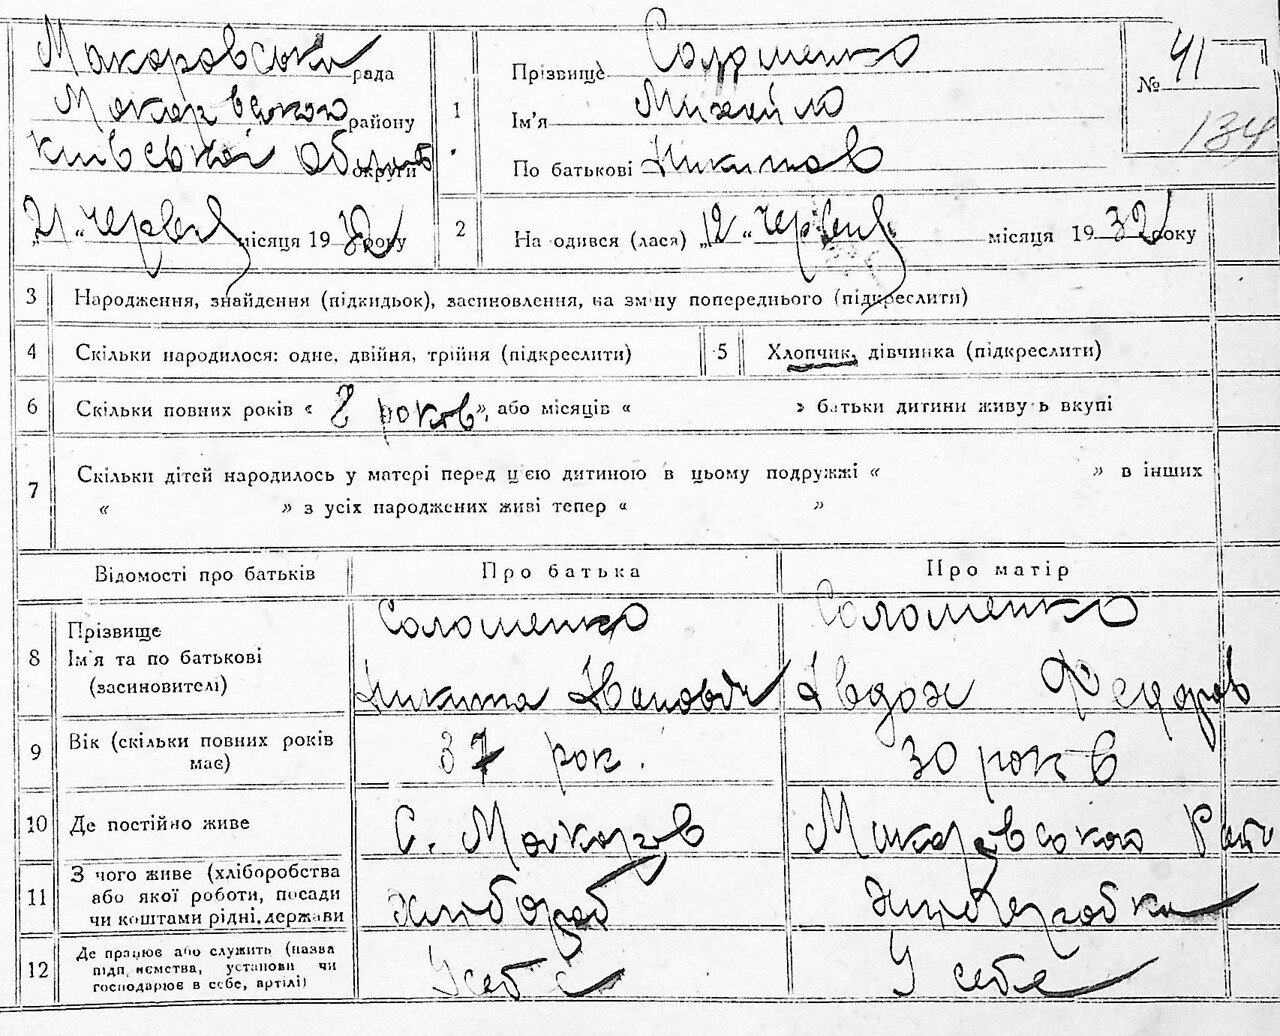 Макаровська рада
Макарівського району
Київської Області округи
„21" червня місяця 1932 року
1
Прізвище Соломенко
Ім'я Михайло
По батькові Никитов
№ 41
134
2
На одився (лася) „12" червня місяця 1932 року
3 Народження, знайдення (підкидьок), засиновлення, на зміну попереднього (підкреслити)
4 Скільки народилося: одне, двійня, трійня (підкреслити)
5 Хлопчик, дівчинка (підкреслити)
6 Скільки повних років « 8 років», або місяців « » батьки дитини живуть вкупі
7 Скільки дітей народилось у матері перед цією дитиною в цьому подружжі « » в інших
« » з усіх народжених живі тепер « »
Відомості про батьків Про батька Про матір
8 Прізвище
Ім'я та по батькові
(засиновителі)
Соломенко
Никита Іванович
Соломенко
Явдох Федоров
9 Вік (скільки повних років
має)
37 рок.
30 років
10 Де постійно живе
С. Макарів
Макарівської Ради
11 З чого живе (хліборобства
або якої роботи, посади
чи коштами рідні, держави
хлібороб
хліборобка
12 Де працює або служить (назва
підп иємства, установи чи
господарює в себе, артілі)
У себе
У себе